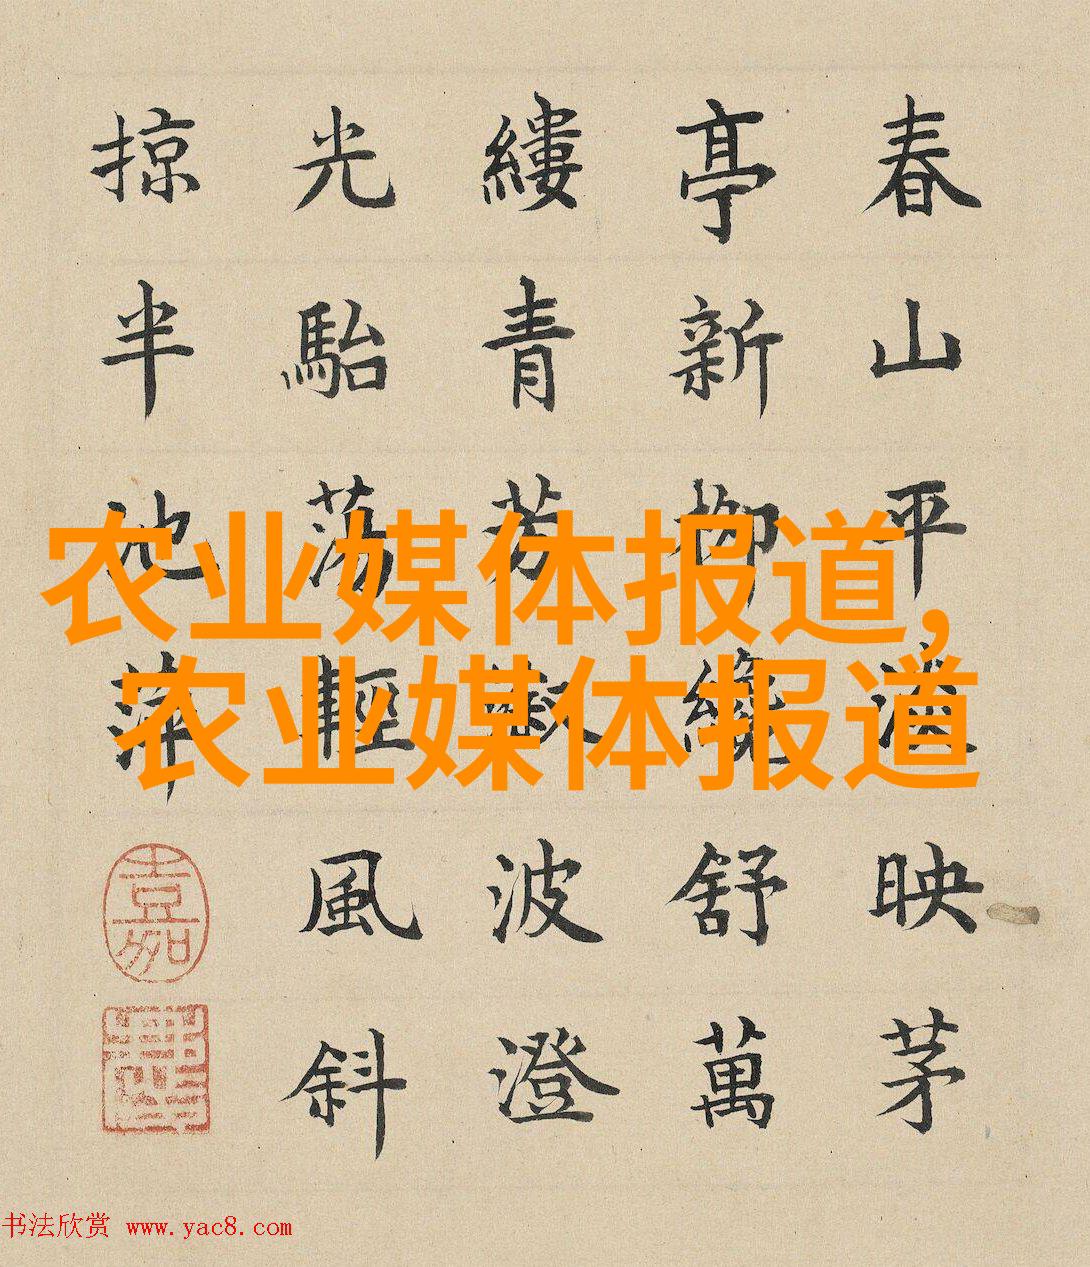 春山平映茅
亭新柳纔舒萬
縷青芳波澄
光駘蕩輕風斜
掠半池萍
嘉
农业媒体报道,
农业媒体报道
书法欣赏 www.yac8.com